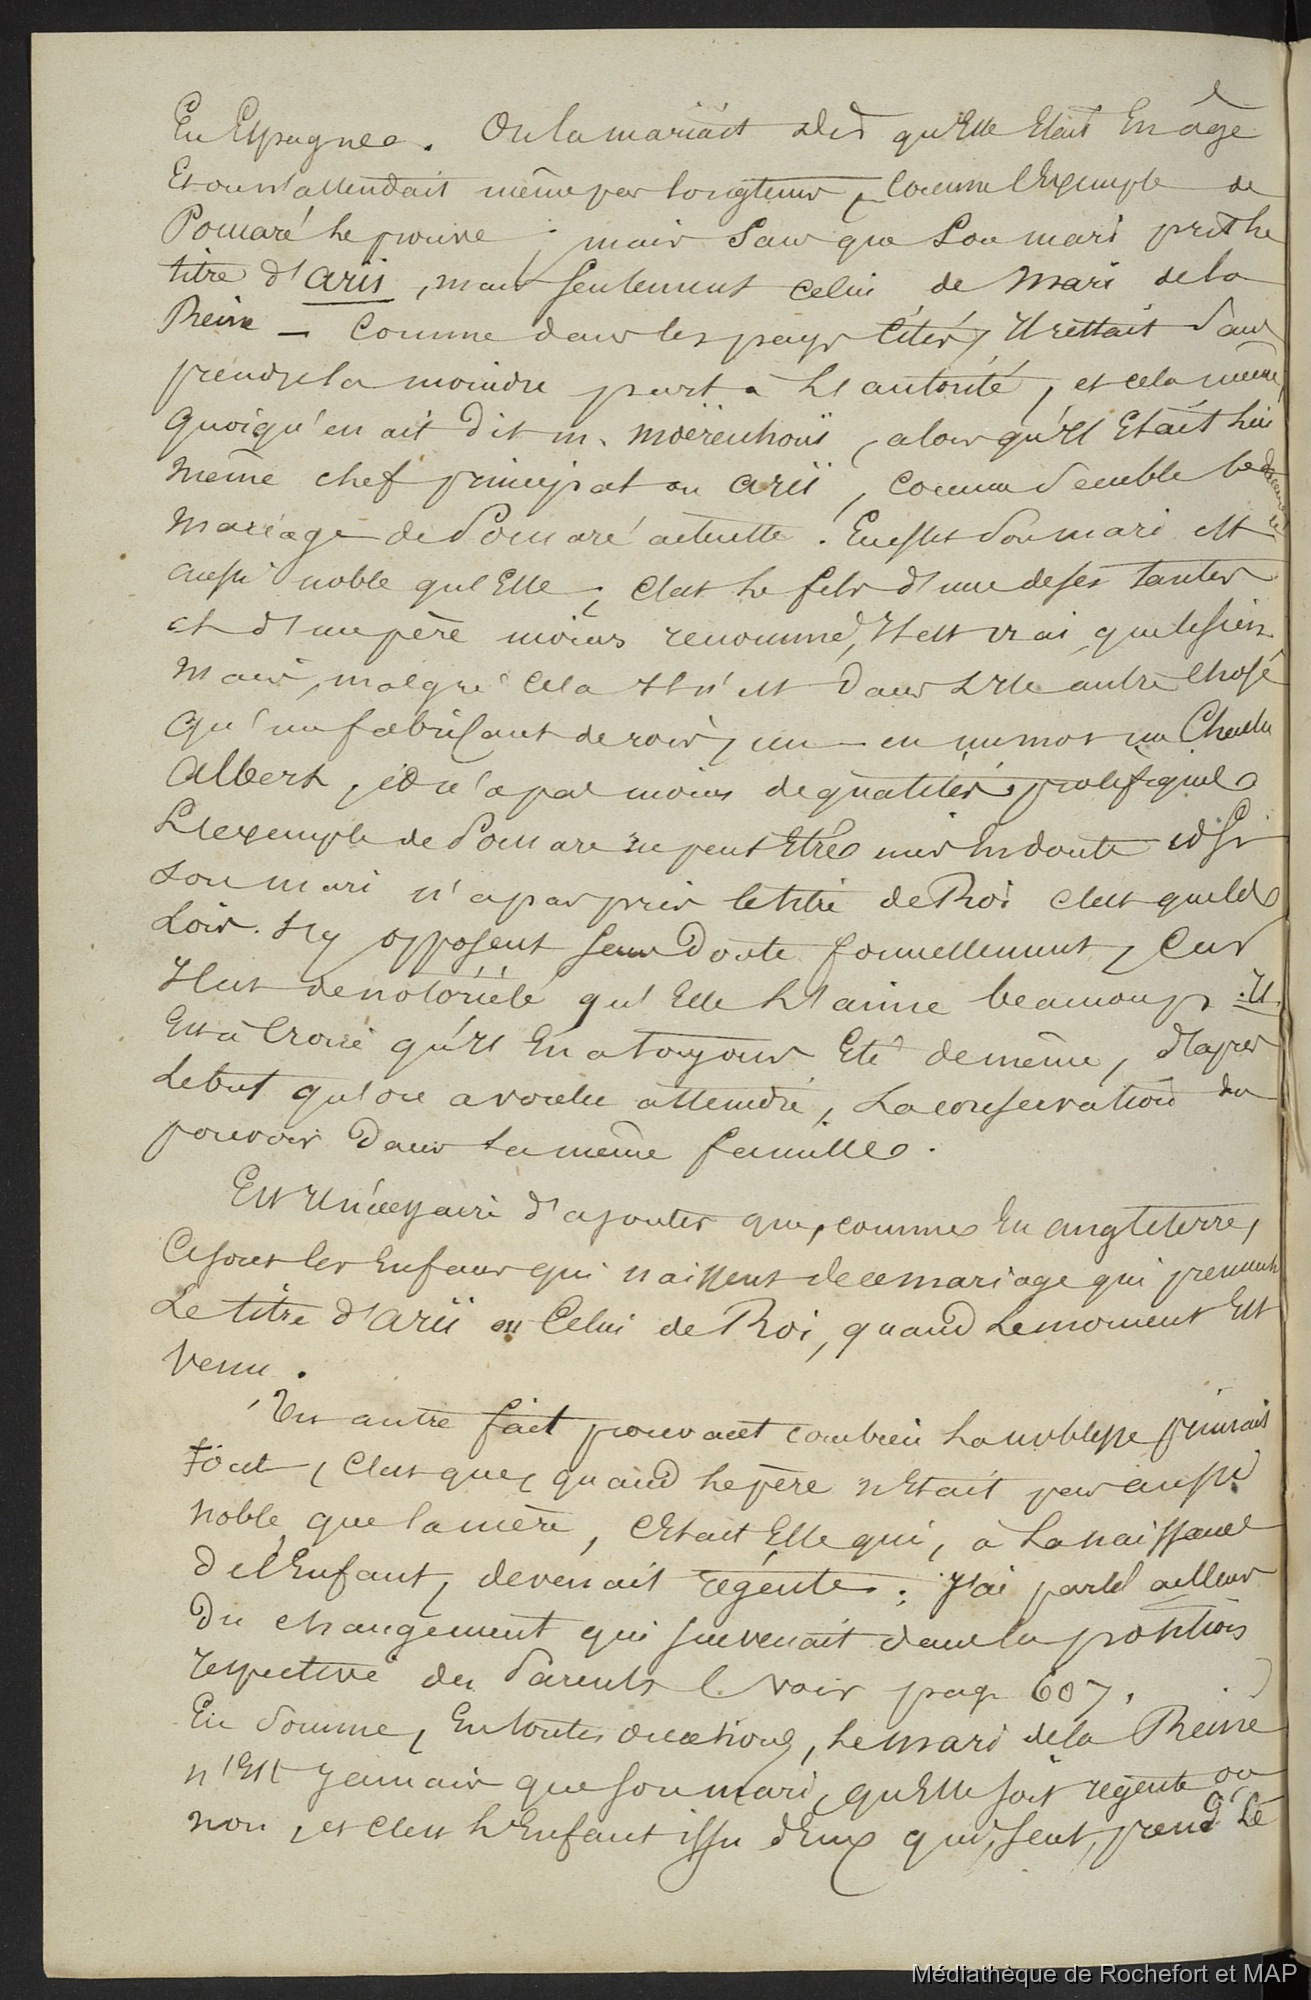 En Espagne. On la mariait dès qu'Elle Etait En âge
Et on n'attendait même pas longtems, comme l'Exemple de
Pomaré le prouve ; mais sans que Son mari prit le
titre d'Arii, mais seulement celui de Mari de la
Reine — Comme dans les pays cités, Il restait sans
prendre la moindre part à l'autorité, et cela même,
quoiqu'en ait dit m. Moërenhoüt, alors qu'il Etait lui
même chef principal ou Arii, comme semble le
mariage de Pomaré actuelle. En effet son mari est
aussi noble qu'Elle ; c'est le fils d'une de ses tantes
et d'un père moins renommé, Il est vrai, que le sien.
Mais, malgré cela Il n'est dans l'Ile autre chose
qu'un fabricant de rois, un en un mot un
Albert, et n'a pas moins de qualités prolifiques
L'exemple de Pomaré ne peut Etre mis En doute et si
son mari n'a pas pris le titre de Roi c'est que les
Lois s'y opposent sans doute formellement, car
Il est de notoriété qu'Elle l'aime beaucoup. Il
Est à Croire qu'il En a toujours Eté de même, d'après
Le but qu'on a voulu atteindre, La conservation du
pouvoir dans la même famille.
Est Il nécessaire d'ajouter que, comme En Angleterre,
Ce sont les Enfans qui naissent de ce mariage qui prennent
Le titre d'Arii ou Celui de Roi, quand Le moment Est
Venu.
Un autre fait prouvant combien La noblesse primait
tout, C'est que, quand le père n'Etait pas aussi
noble que la mère, C'Etait Elle qui, à La naissance
de l'Enfant, devenait régente. J'ai parlé ailleurs
du changement qui survenait dans la position
respective des Parents (voir page 607.)
En somme, En toutes occasions, le mari de la Reine
n'Est jamais que son mari, qu'Elle soit régente ou
non, et c'est l'Enfant issu d'Eux qui, seul, prend Le
Médiathèque de Rochefort et MAP